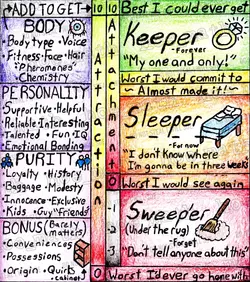 →ADD TO GET→
10
10
Best I could ever get
BODY
Body type • Voice
Fitness • Face • Hair
"Pheromones"
Chemistry
PERSONALITY
Supportive • Helpful
Reliable Interesting
Talented • Fun • IQ
Emotional Bonding
PURITY
Loyalty • History
Baggage • Modesty
Innocence • Exclusive
Kids • Guy "Friends"
BONUS (Barely matters)
• Conveniences
• Possessions
• Origin • Quirk
Attraction
0
Attachment
0
-1
-2
-3
Keeper
- Forever
"My one and only!"
Worst I would commit to
~ Almost made it! ~
Sleeper
- For now
"I don't know where
I'm gonna be in three weeks
Worst I would see again
Sweeper
(Under the rug)
- Forget
"Don't tell anyone about this"
Worst I'd ever go home with